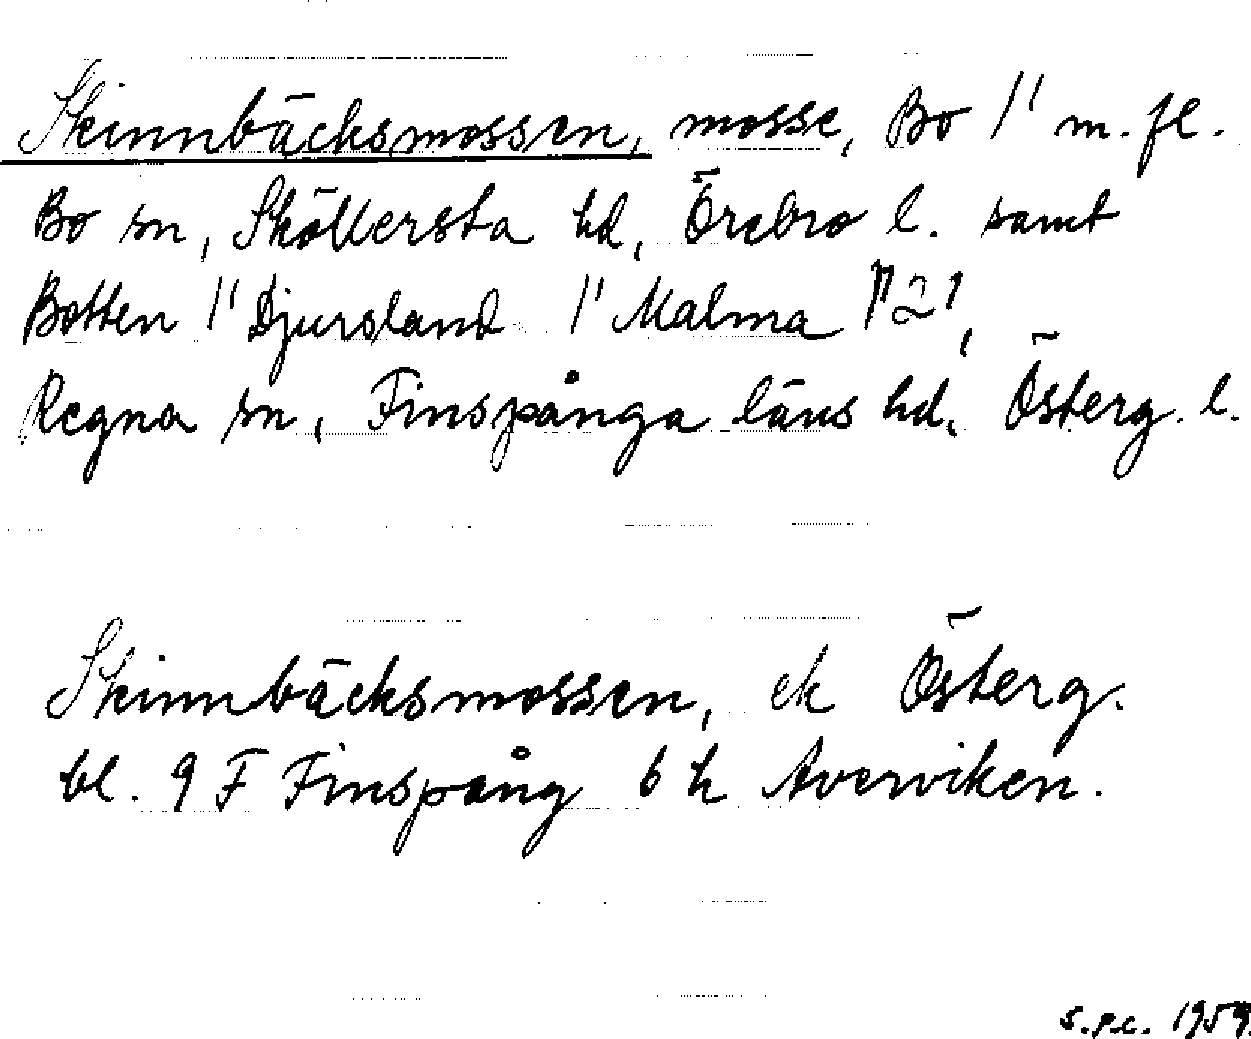 Skinnbäcksmossen, mosse, Bo 1¹ m. fl.
Bo sn, Sköllersta hd, Örebro l. samt
Botten 1¹ Djursland 1¹ Malma 1²,
Regna sn, Finspånga läns hd, Österg. l.
Skinnbäcksmossen, ek Österg.
bl. 9 F Finspång 6 h Averviken.
s.p.c. 1959.